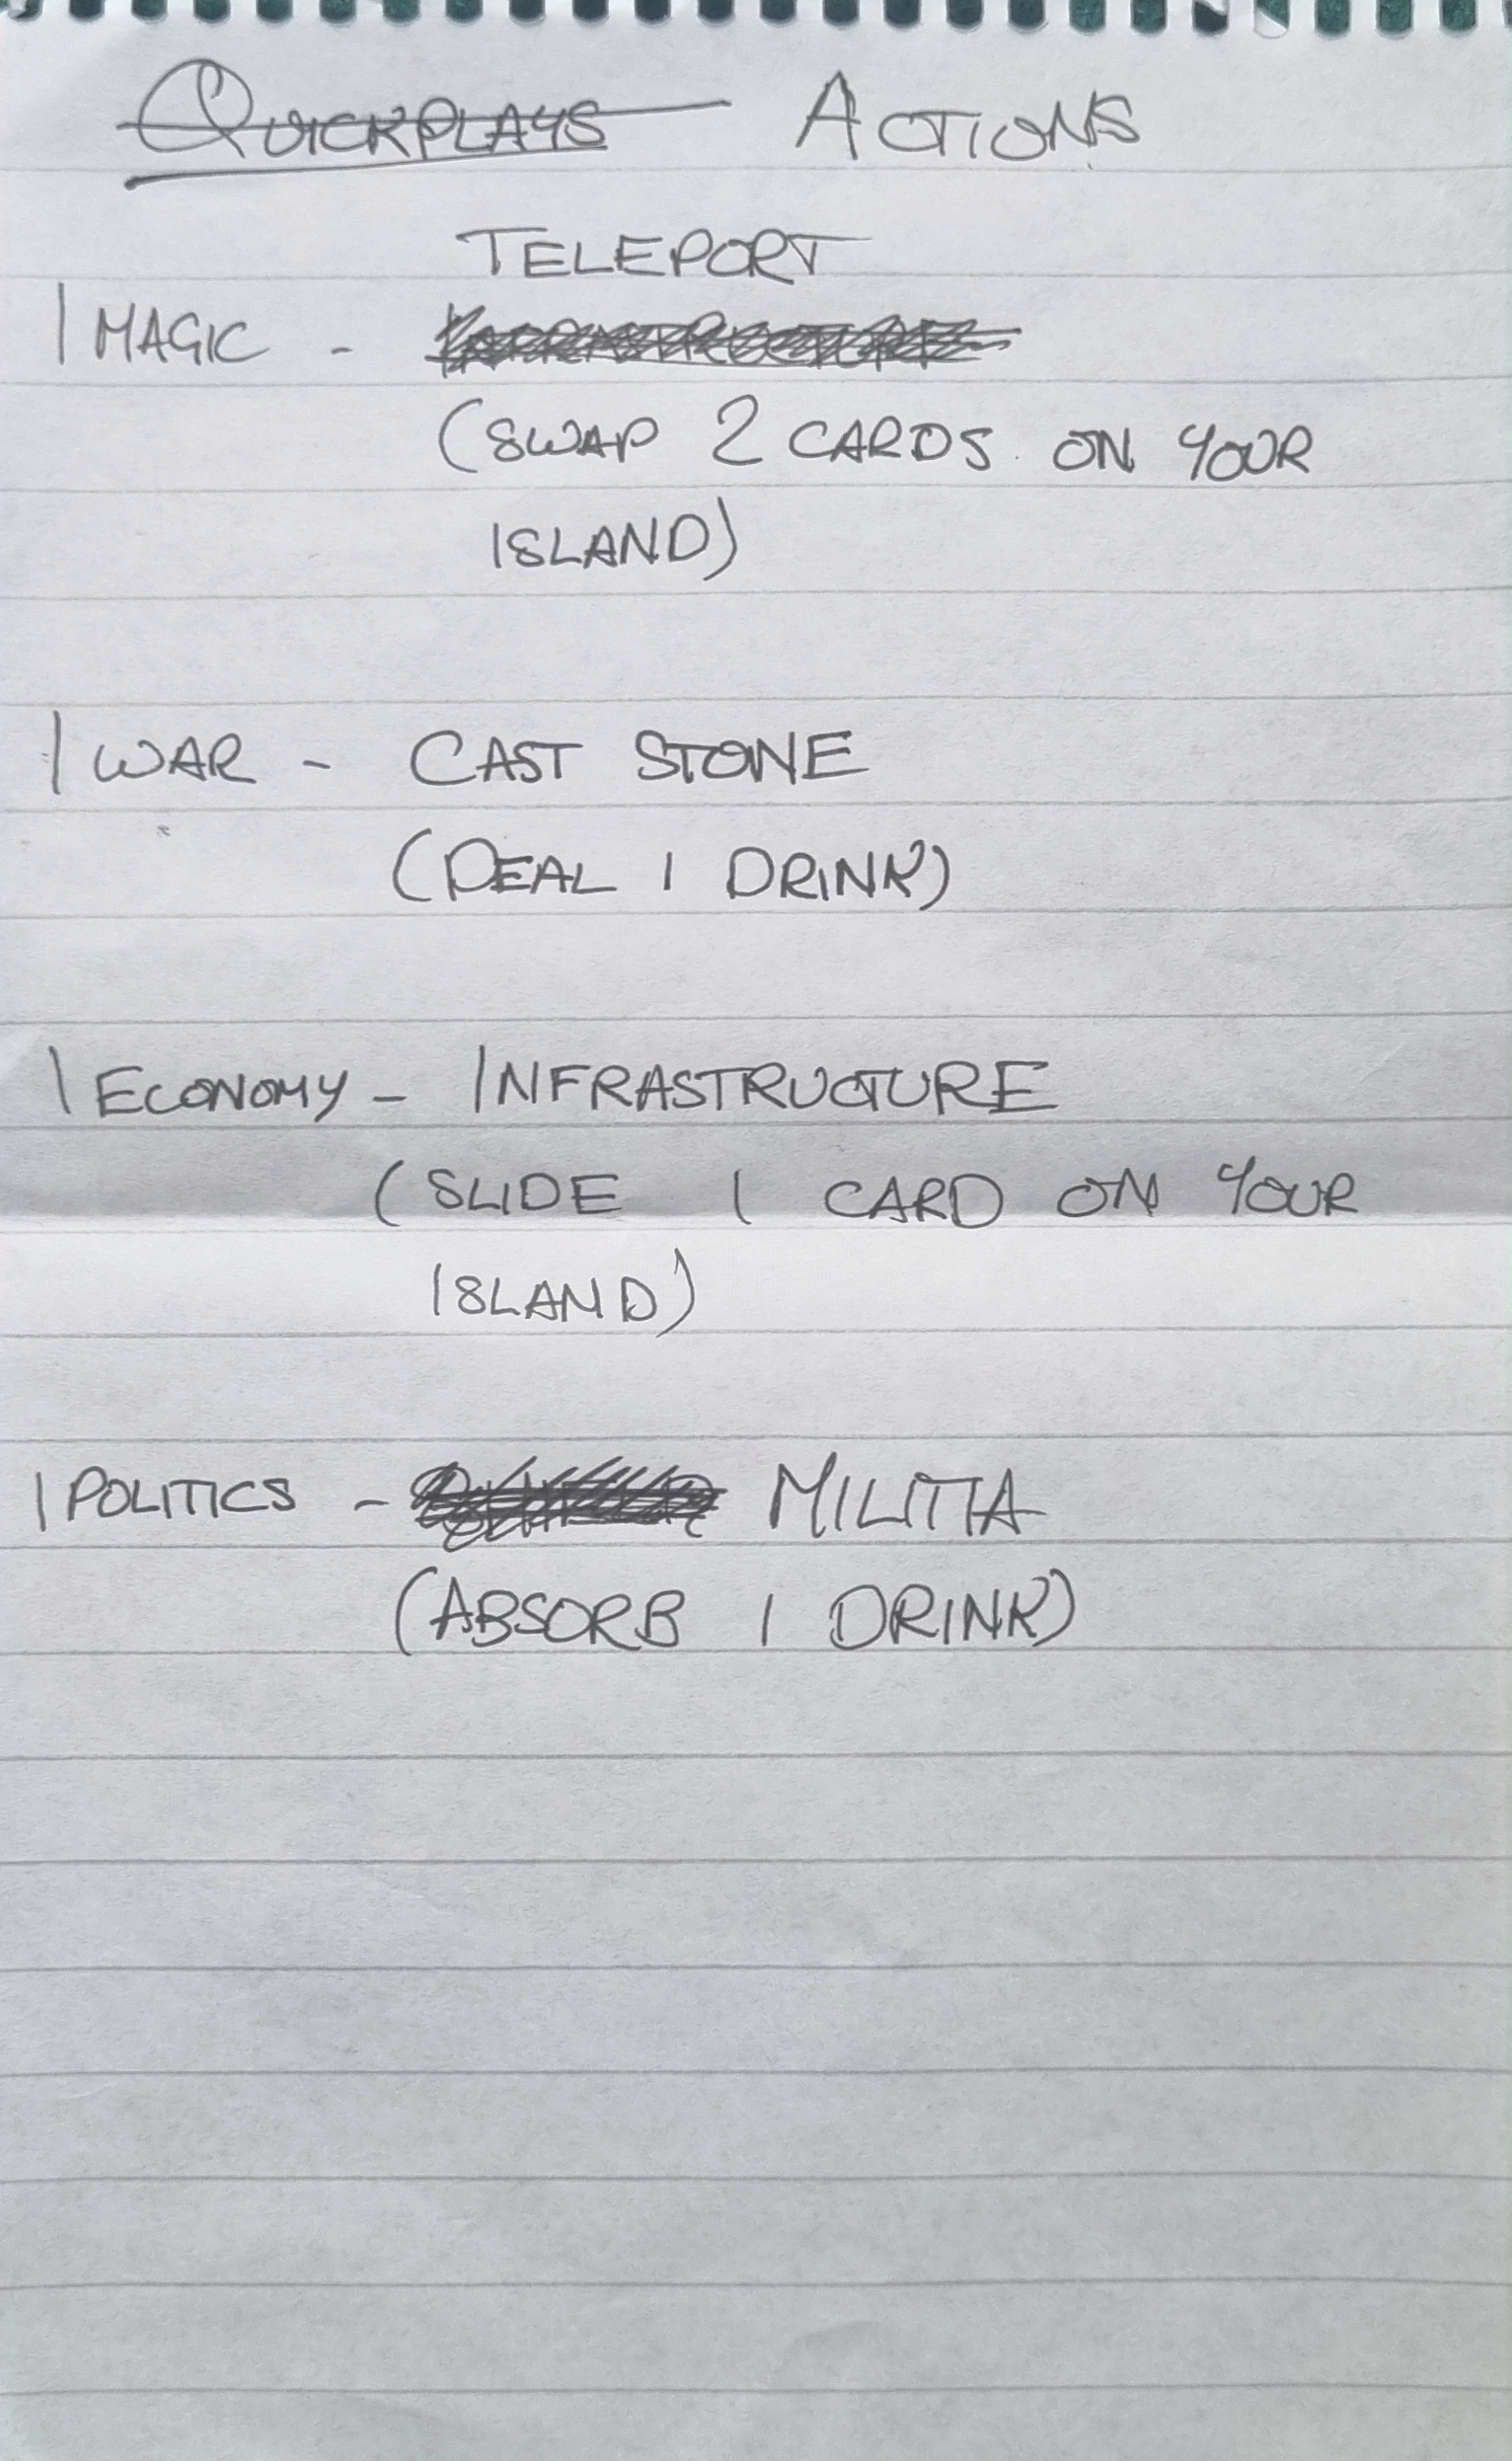 QUICKPLAYS ACTIONS
TELEPORT
1 MAGIC -
(SWAP 2 CARDS ON YOUR
ISLAND)
1 WAR - CAST STONE
(DEAL 1 DRINK)
1 ECONOMY - INFRASTRUCTURE
(SLIDE 1 CARD ON YOUR
ISLAND)
1 POLITICS - MILITIA
(ABSORB 1 DRINK)